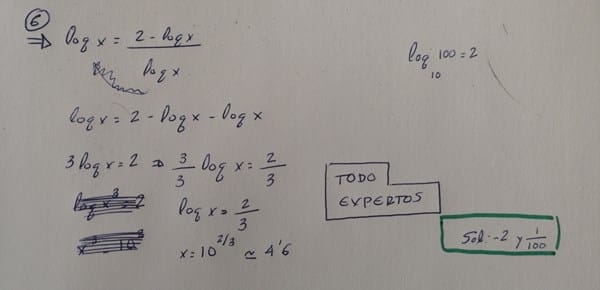 6
⇒ log x = 2 - log x / log x
log₁₀ 100 = 2
log x = 2 - log x - log x
3 log x = 2 ⇒ 3/3 log x = 2/3
log x = 2/3
x = 10^2/3 ≃ 4'6
TODO
EXPERTOS
Sol: -2 y 1/100